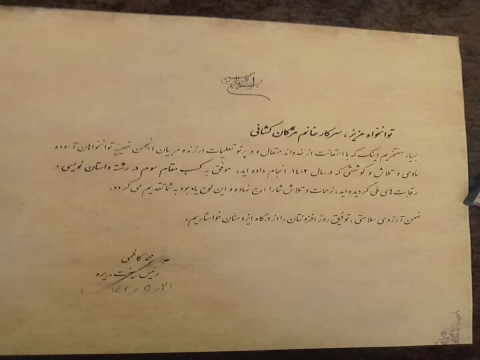 توانخواه عزیز، سرکار خانم مژگان کشانی
بسیار مفتخریم اینک که با استعانت از خداوند متعال و در پرتو تعلیمات ارزنده مربیان انجمن خیریه توانخواهان آسوده
مادی و تلاش و کوششی که در سال ۱۴۰۲ انجام داده اید، موفق به کسب مقام سوم در رشته داستان نویسی در
رقابت های ملی گردیده اید، زحمات و تلاش شما را ارج نهاده و این لوح یادبود به شما تقدیم می گردد.
ضمن آرزوی سلامتی، توفیق روز افزونتان را از درگاه ایزد منان خواستاریم.
رئیس هیئت مدیره